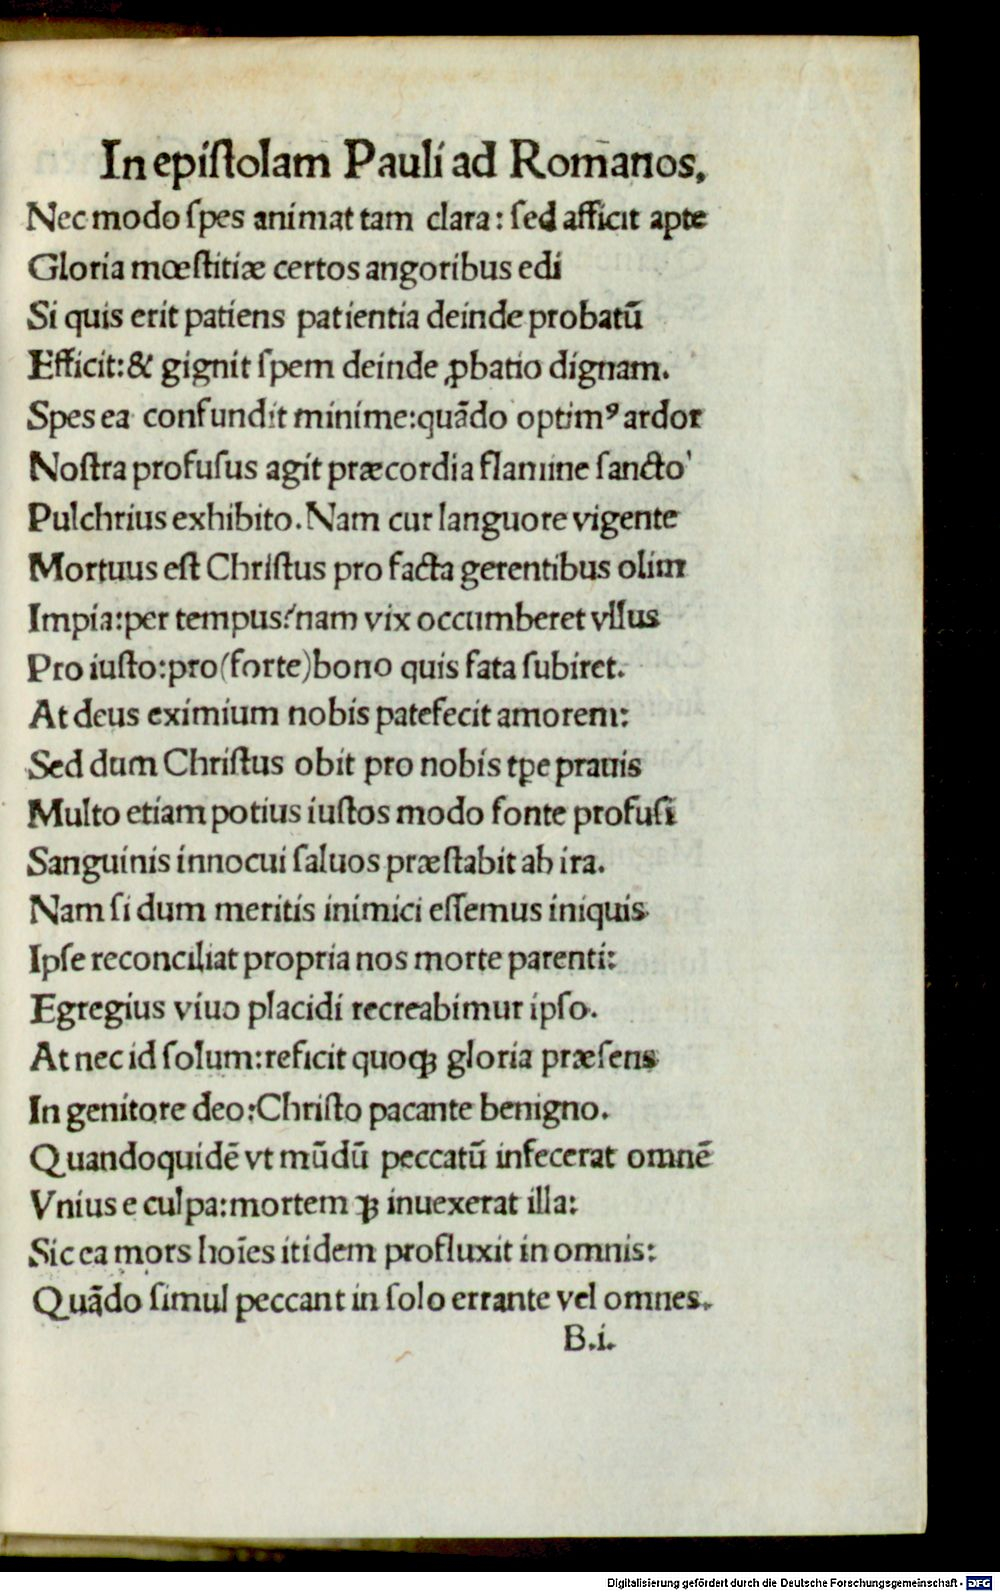 In epiſtolam Pauli ad Romanos.
Nec modo ſpes animat tam clara: ſed afficit apte
Gloria mœſtitiæ certos angoribus edi
Si quis erit patiens patientia deinde probatū
Efficit:& gignit ſpem deinde ꝓbatio dignam.
Spes ea confundit minime:quādo optimꝰ ardor
Noſtra profuſus agit præcordia flamine ſancto
Pulchrius exhibito. Nam cur languore vigente
Mortuus eſt Chriſtus pro facta gerentibus olim
Impia:per tempus? nam vix occumberet vllus
Pro iuſto:pro(forte)bono quis fata ſubiret.
At deus eximium nobis patefecit amorem:
Sed dum Chriſtus obit pro nobis tꝑe prauis
Multo etiam potius iuſtos modo fonte profuſi
Sanguinis innocui ſaluos præſtabit ab ira.
Nam ſi dum meritis inimici eſſemus iniquis
Ipſe reconciliat propria nos morte parenti:
Egregius viuo placidi recreabimur ipſo.
At nec id ſolum:reficit quoqꝫ gloria præſens
In genitore deo:Chriſto pacante benigno.
Quandoquidē vt mūdū peccatū infecerat omnē
Vnius e culpa:mortem qꝫ inuexerat illa:
Sic ea mors hoīes itidem profluxit in omnis:
Quādo ſimul peccant in ſolo errante vel omnes.
B.i.
Digitalisierung gefördert durch die Deutsche Forschungsgemeinschaft - DFG